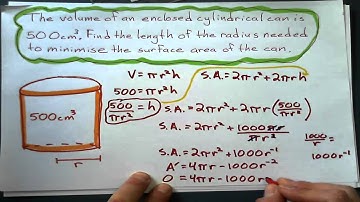 The volume of an enclosed cylindrical can is
500cm³. Find the length of the radius needed
to minimise the surface area of the can.
V = πr²h
500 = πr²h
500/πr² = h
500cm³
r
S.A. = 2πr² + 2πrh
S.A. = 2πr² + 2πr(500/πr²)
S.A. = 2πr² + 1000πr/πr²
S.A. = 2πr² + 1000r⁻¹
A' = 4πr - 1000r⁻²
0 = 4πr - 1000r
1000/r =
1000r⁻¹